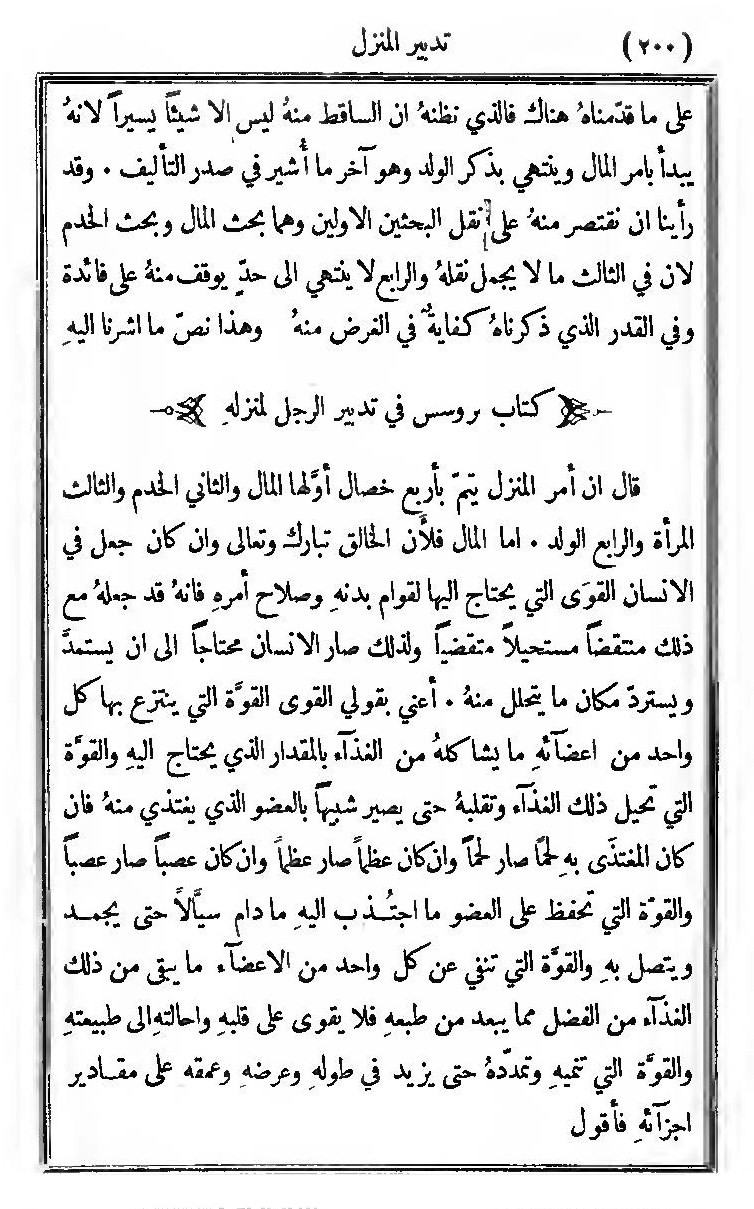 (٢٠٠) تدبير المنزل
على ما قدّمناهُ هناك فالذي نظنهُ ان الساقط منهُ ليس الا شيئاً يسيراً لانهُ
يبدأ بامر المال وينتهي بذكر الولد وهو آخر ما أُشير في صدر التأليف ٠ وقد
رأينا ان نقتصر منهُ على نقل البحثين الاولين وهما بحث المال وبحث الخدم
لان في الثالث ما لا يجمل نقلهُ والرابع لا ينتهي الى حدٍّ يوقف منهُ على فائدة
وفي القدر الذي ذكرناهُ كفايةٌ في الغرض منهُ وهذا نصّ ما اشرنا اليهِ
كتاب بروسس في تدبير الرجل لمنزلهِ
قال ان أمر المنزل يتمّ بأربع خصال أوَّلها المال والثاني الخدم والثالث
المرأة والرابع الولد ٠ اما المال فلأن الخالق تبارك وتعالى وان كان جعل في
الانسان القوَى التي يحتاج اليها لقوام بدنهِ وصلاح أمرهِ فانهُ قد جعلهُ مع
ذلك منتقضاً مستحيلاً متقضياً ولذلك صار الانسان محتاجاً الى ان يستمدَّ
ويستردّ مكان ما يتحلل منهُ ٠ أعني بقولي القوى القوَّة التي ينتزع بها كل
واحد من اعضآئهِ ما يشاكلهُ من الغذآء بالمقدار الذي يحتاج اليهِ والقوَّة
التي تحيل ذلك الغذآء وتقلبهُ حتى يصير شبيهاً بالعضو الذي يغتذي منهُ فان
كان المغتذَى بهِ لحمًا صار لحماً وان كان عظماً صار عظماً وان كان عصباً صار عصباً
والقوّة التي تحفظ على العضو ما اجتُذب اليهِ ما دام سيَّالاً حتى يجمد
ويتصل بهِ والقوَّة التي تنفي عن كل واحد من الاعضآء ما يبقى من ذلك
الغذآء من الفضل مما يبعد من طبعهِ فلا يقوى على قلبهِ واحالتهِ الى طبيعتهِ
والقوَّة التي تنميهِ وتمدّدهُ حتى يزيد في طولهِ وعرضهِ وعمقه على مقادير
اجزآئهِ فأقول